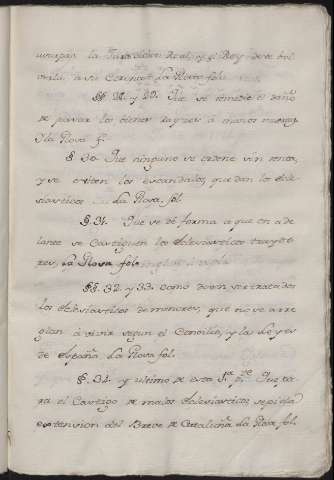 usurpan la Jurisdiccion Real, y el Rey deve bol
verla a su Corona la Nota fol.
§§. 28. y 29. Que se remedie el daño
de pasar los bienes rayzes à manos muertas
la Nota f.
§. 30. Que ninguno se ordene sin renta,
y se eviten los escandalos, que dan los Ecle-
siasticos la Nota fol.
§. 31. Que se dè forma a que en ade
lante se Castiguen los Eclesiasticos traydo
res, la Nota fol.
§§. 32. y 33. como deven ser tratados
los Eclesiasticos de menores, que no se arre
glan à vivir segun el Concilio, y las Leyes
de España la Nota fol.
§. 34. y ultimo de esta 1.ª p.te Que pa
ra el Castigo de malos Eclesiasticos, se pida
extension del Breve de Cataluña la Nota fol.